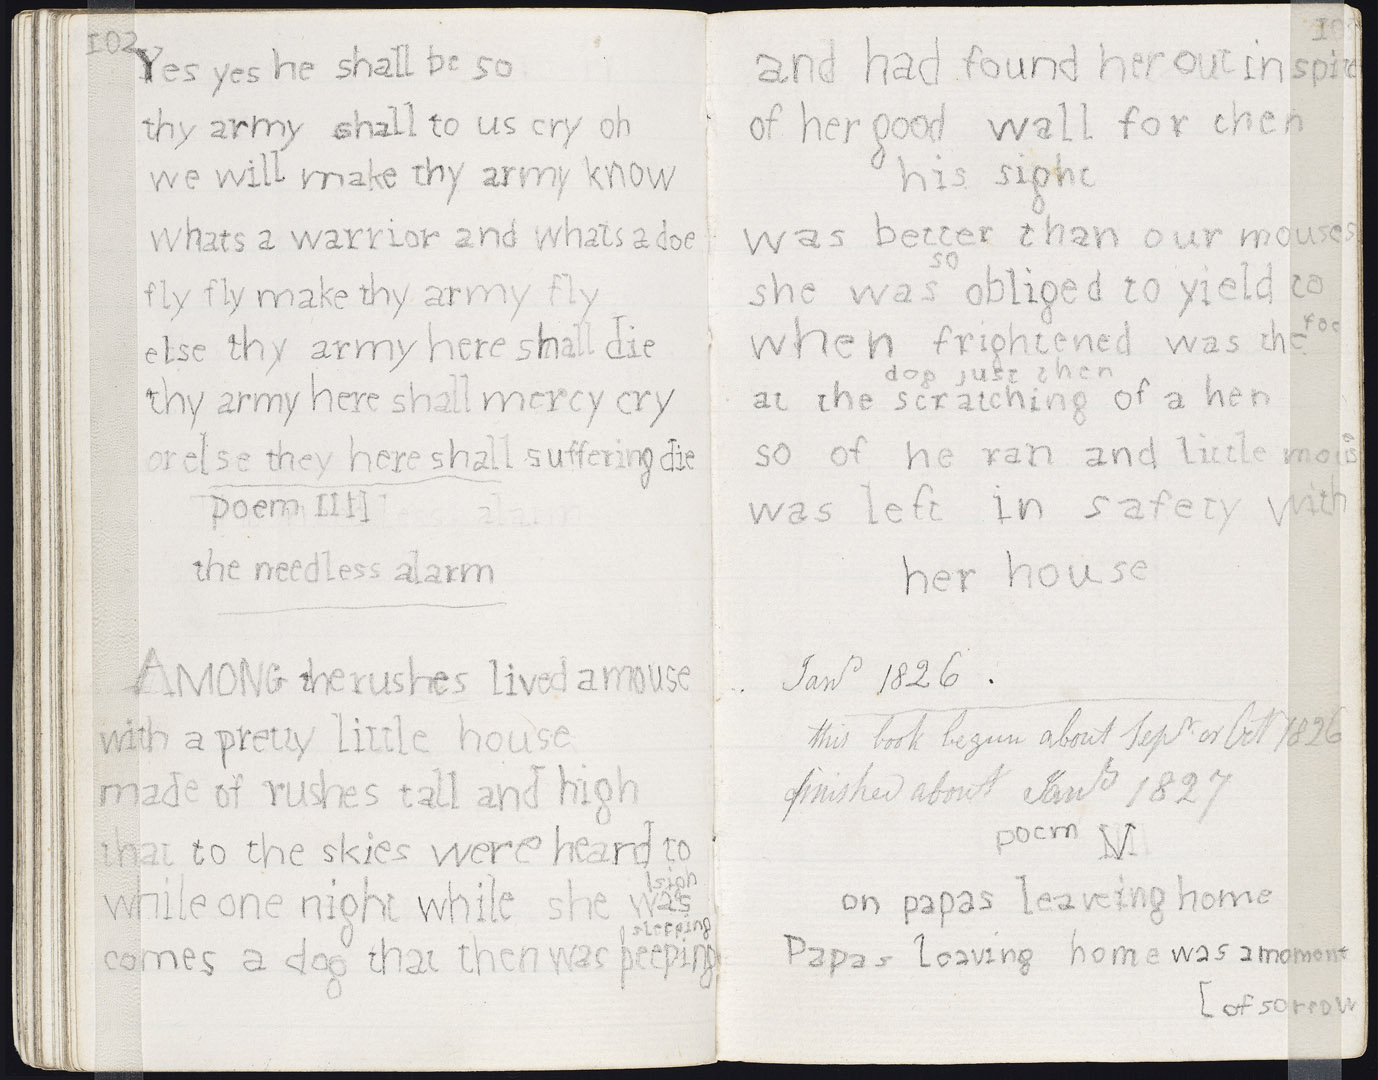 102
Yes yes he shall be so
thy army shall to us cry oh
we will make thy army know
whats a warrior and whats a doe
fly fly make thy army fly
else thy army here shall die
thy army here shall mercy cry
or else they here shall suffering die
poem III]
the needless alarm
AMONG the rushes lived a mouse
with a pretty little house
made of rushes tall and high
that to the skies were heard to
[sigh
while one night while she was
[sleeping
comes a dog that then was peeping
and had found her out in spite
of her good wall for then
his sight
was better than our mouses
so
she was obliged to yield to
foe
when frightened was the
dog just then
at the scratching of a hen
so of he ran and little mouse
was left in safety with
her house
Jany 1826.
this book begun about Sepr or Oct 1826
finished about Jany 1827
poem IV
on papas leaveing home
Papas leaving home was a moment
[of sorrow